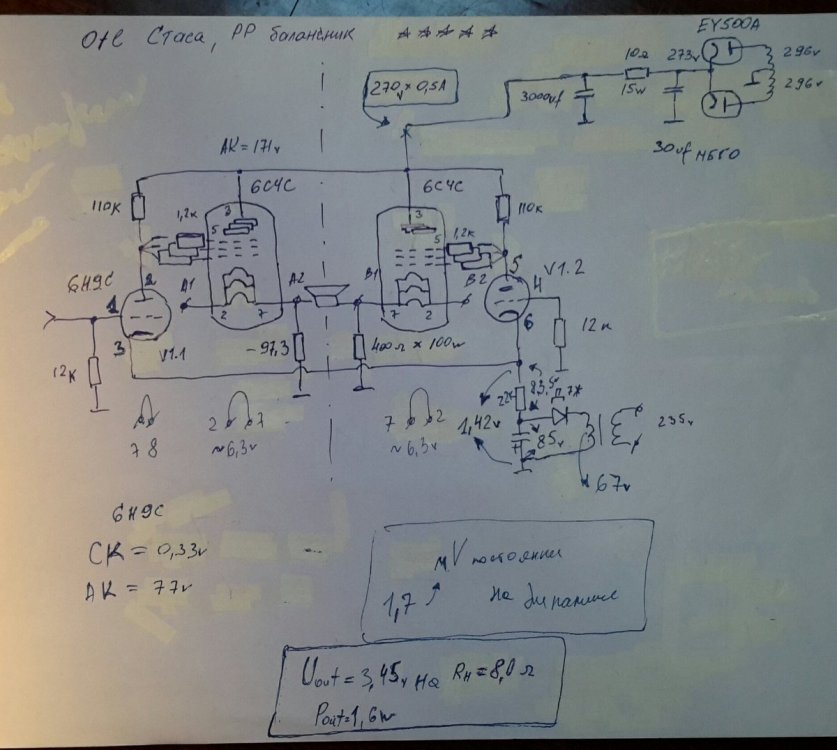 Стаса, PP балансник ☆ ☆ ☆ ☆ ☆
EY500A
10Ω 273v 296v
270v × 0,5A
3000uf 15w 296v
30uf МБГО
AK = 171v
6C4C 6C4C
110K 3 3 110K
1,2K 5 5 1,2K
6H9C 2 A1 A2 B1 B2 5 V1.2
1 4
2 7 7 2 6
3 V1.1 -97,3 400Ω × 100w 12K
12K
22K 83,5v Д7Ж
2 7 7 2 1,42v 235v
7 8 ~6,3v ~6,3v 85v
67v
6H9C
CK = 0,33v
AK = 77v
mV постоянки
1,7 на динамике
Uout = 3,45v на RH = 8,0Ω
Pout = 1,6w